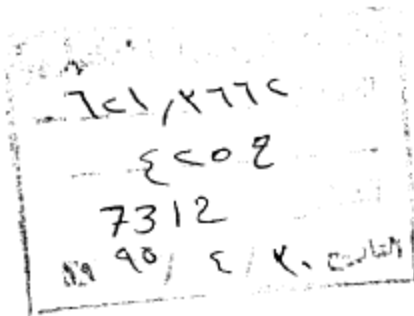 ٦٢١,٣٦٦٢
٤٢٥ع
7312
التاريخ ٣٠ / ٤ / ٩٥